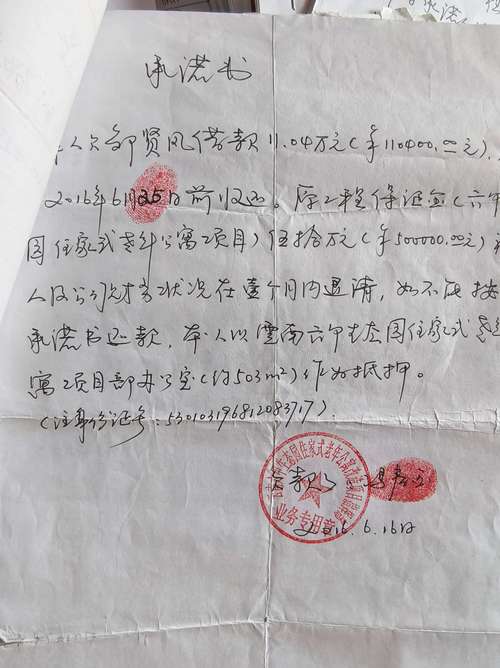 承诺书
本人欠邹贤凤借款11.04万元(¥110400.00元).
2016年6月25日前归还。原工程保证金(六甲
园住家式老年公寓项目)伍拾万元(¥500000.00元)
人及公司财务状况在壹个月内退清,如不能按
承诺书还款,本人以云南六甲生态园住家式老
寓项目部办公室(约503m²)作为抵押。
(注身份证号:530103196812083717)
欠款人
业务专用章
2016.6.16日